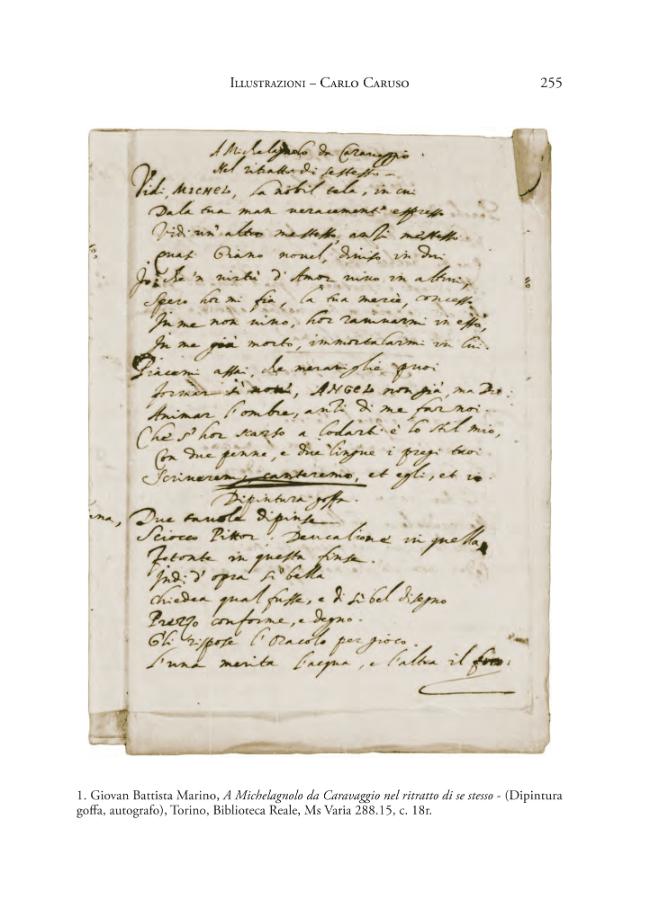 ILLUSTRAZIONI – CARLO CARUSO 255
A Michelagnolo da Caravaggio.
Nel ritratto di sestesso
Vidi, MICHEL, la nobil tela, in cui
Dala tua man veracement' espresso
Vidi un' altro mestesso, anzi mestesso
quasi Giano novel, diviso in dui
Io, che 'n virtù d' Amor vivo in altrui,
Spero hor mi fia, la tua mercè, concesso
In me non vivo, hor ravivarmi in esso,
In me già morto, immortalarmi in lui.
Piacemi assai, che meraviglie puoi
formar sì nove, ANGEL non già, ma Dio:
Animar l'ombre, anzi di me far noi.
Che s'hor scarso a lodarti è lo stil mio,
Con due penne, e due lingue i pregi tuoi
Scriverem, canteremo, et egli, et io.
Dipintura goffa.
Due tavole dipinse
Sciocco Pittor. Deucalione in quella
Fetonte in questa finse.
Indi d' opra sì bella
chiedea qual fusse, e di sì bel disegno
Prezzo conforme, e degno.
Gli rispose l'Oracolo per gioco.
L'una merita l'acqua, e l'altra il foco.
1. Giovan Battista Marino, A Michelagnolo da Caravaggio nel ritratto di se stesso - (Dipintura
goffa, autografo), Torino, Biblioteca Reale, Ms Varia 288.15, c. 18r.